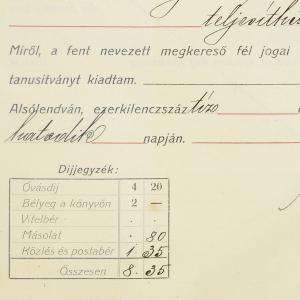 teljesíthe
Miről, a fent nevezett megkereső fél jogai
tanusitványt kiadtam.
Alsólendván, ezerkilenczszáz tizo
hatodik napján.
Dijjegyzék:
Óvásdij 4 20
Bélyeg a könyvön 2 —
Vitelbér . .
Másolat . 80
Közlés és postabér 1 35
Összesen 8 35